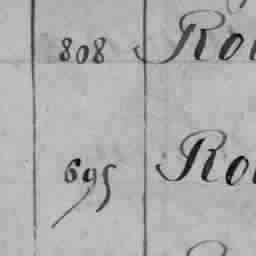 808 Ro
695 Ro